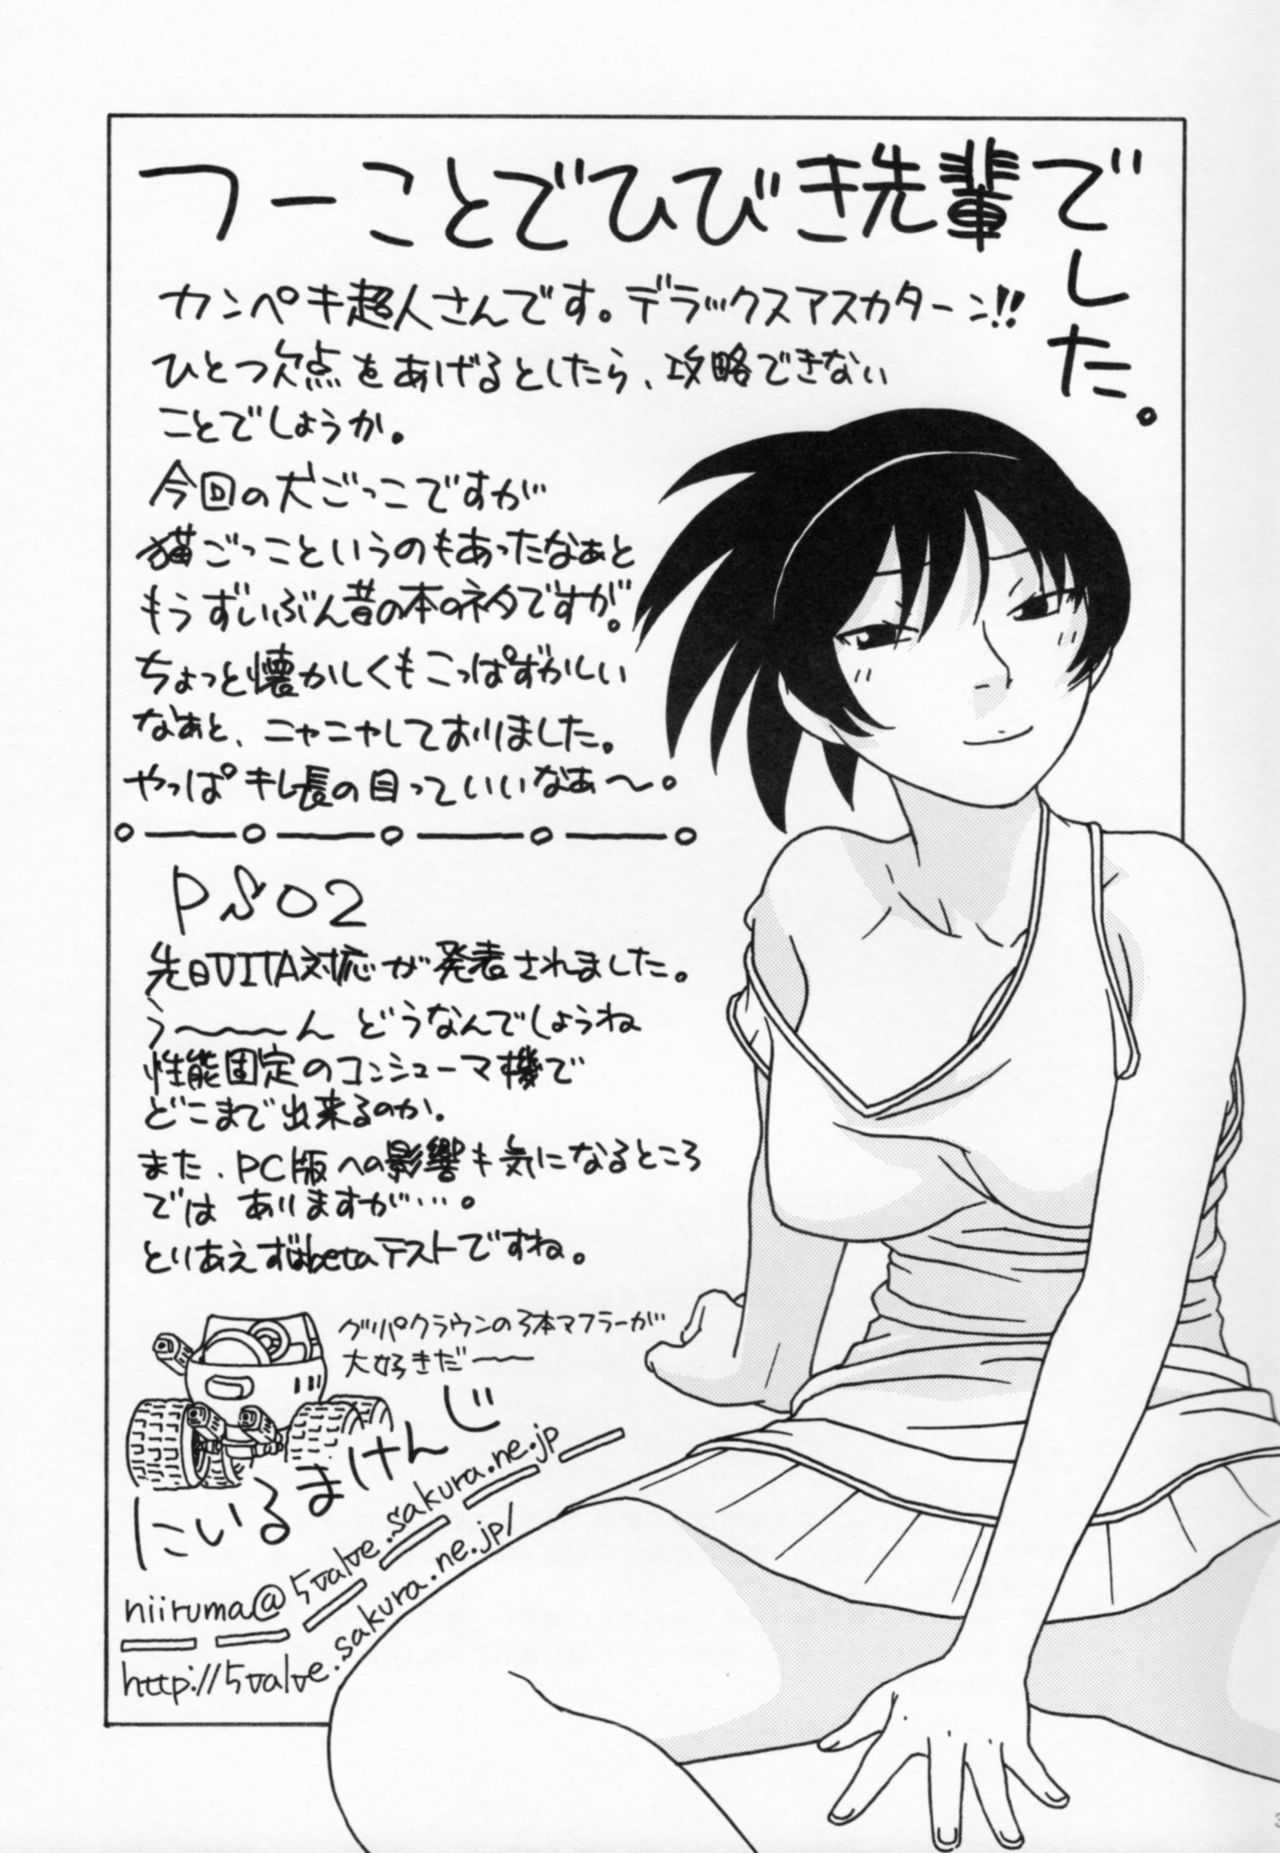 つーことでひびき先輩でした。
カンペキ超人さんです。デラックスアスカターン!!
ひとつ欠点をあげるとしたら、攻略できない
ことでしょうか。
今回の犬ごっこですが
猫ごっこというのもあったなぁと
もうずいぶん昔の本のネタですが。
ちょっと懐かしくもこっぱずかしい
なぁと、ニャニャしておりました。
やっぱキレ長の目っていいなぁ〜。
PSO2
先日VITA対応が発表されました。
う〜〜〜ん どうなんでしょうね
性能固定のコンシューマ機で
どこまで出来るのか。
また、PC版への影響も気になるところ
ではありますが…。
とりあえずはbetaテストですね。
グリパクラウンの3本マフラーが
大好きだ〜〜
にいるまけんじ
niiruma@5valve.sakura.ne.jp
http://5valve.sakura.ne.jp/
3